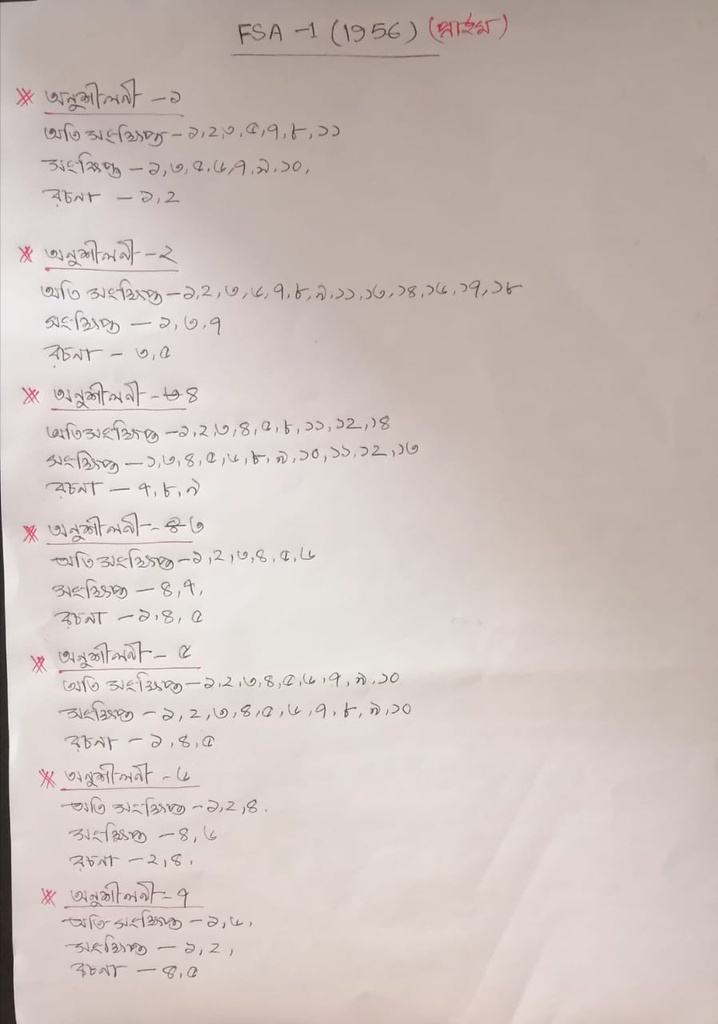 FSA -1 (1956) (প্রাইম)
অনুশীলনী -১
অতি সংক্ষিপ্ত - ১,২,৩,৫,৭,৮,১১
সংক্ষিপ্ত - ১,৩,৫,৬,৭,৯,১০,
রচনা - ১,২
অনুশীলনী - ২
অতি সংক্ষিপ্ত - ১,২,৩,৬,৭,৮,৯,১১,১৩,১৪,১৬,১৭,১৮
সংক্ষিপ্ত - ১,৩,৭
রচনা - ৩,৫
অনুশীলনী - ৪
অতি সংক্ষিপ্ত - ১,২,৩,৪,৫,৮,১১,১২,১৪
সংক্ষিপ্ত - ১,৩,৪,৫,৬,৮,৯,১০,১১,১২,১৩
রচনা - ৭,৮,৯
অনুশীলনী - ৩
অতি সংক্ষিপ্ত - ১,২,৩,৪,৫,৬
সংক্ষিপ্ত - ৪,৭,
রচনা - ১,৪,৫
অনুশীলনী - ৫
অতি সংক্ষিপ্ত - ১,২,৩,৪,৫,৬,৭,৯,১০
সংক্ষিপ্ত - ১,২,৩,৪,৫,৬,৭,৮,৯,১০
রচনা - ১,৪,৫
অনুশীলনী - ৬
অতি সংক্ষিপ্ত - ১,২,৪.
সংক্ষিপ্ত - ৪,৬
রচনা - ২,৪.
অনুশীলনী - ৭
অতি সংক্ষিপ্ত - ১,৬,
সংক্ষিপ্ত - ১,২,
রচনা - ৪,৫